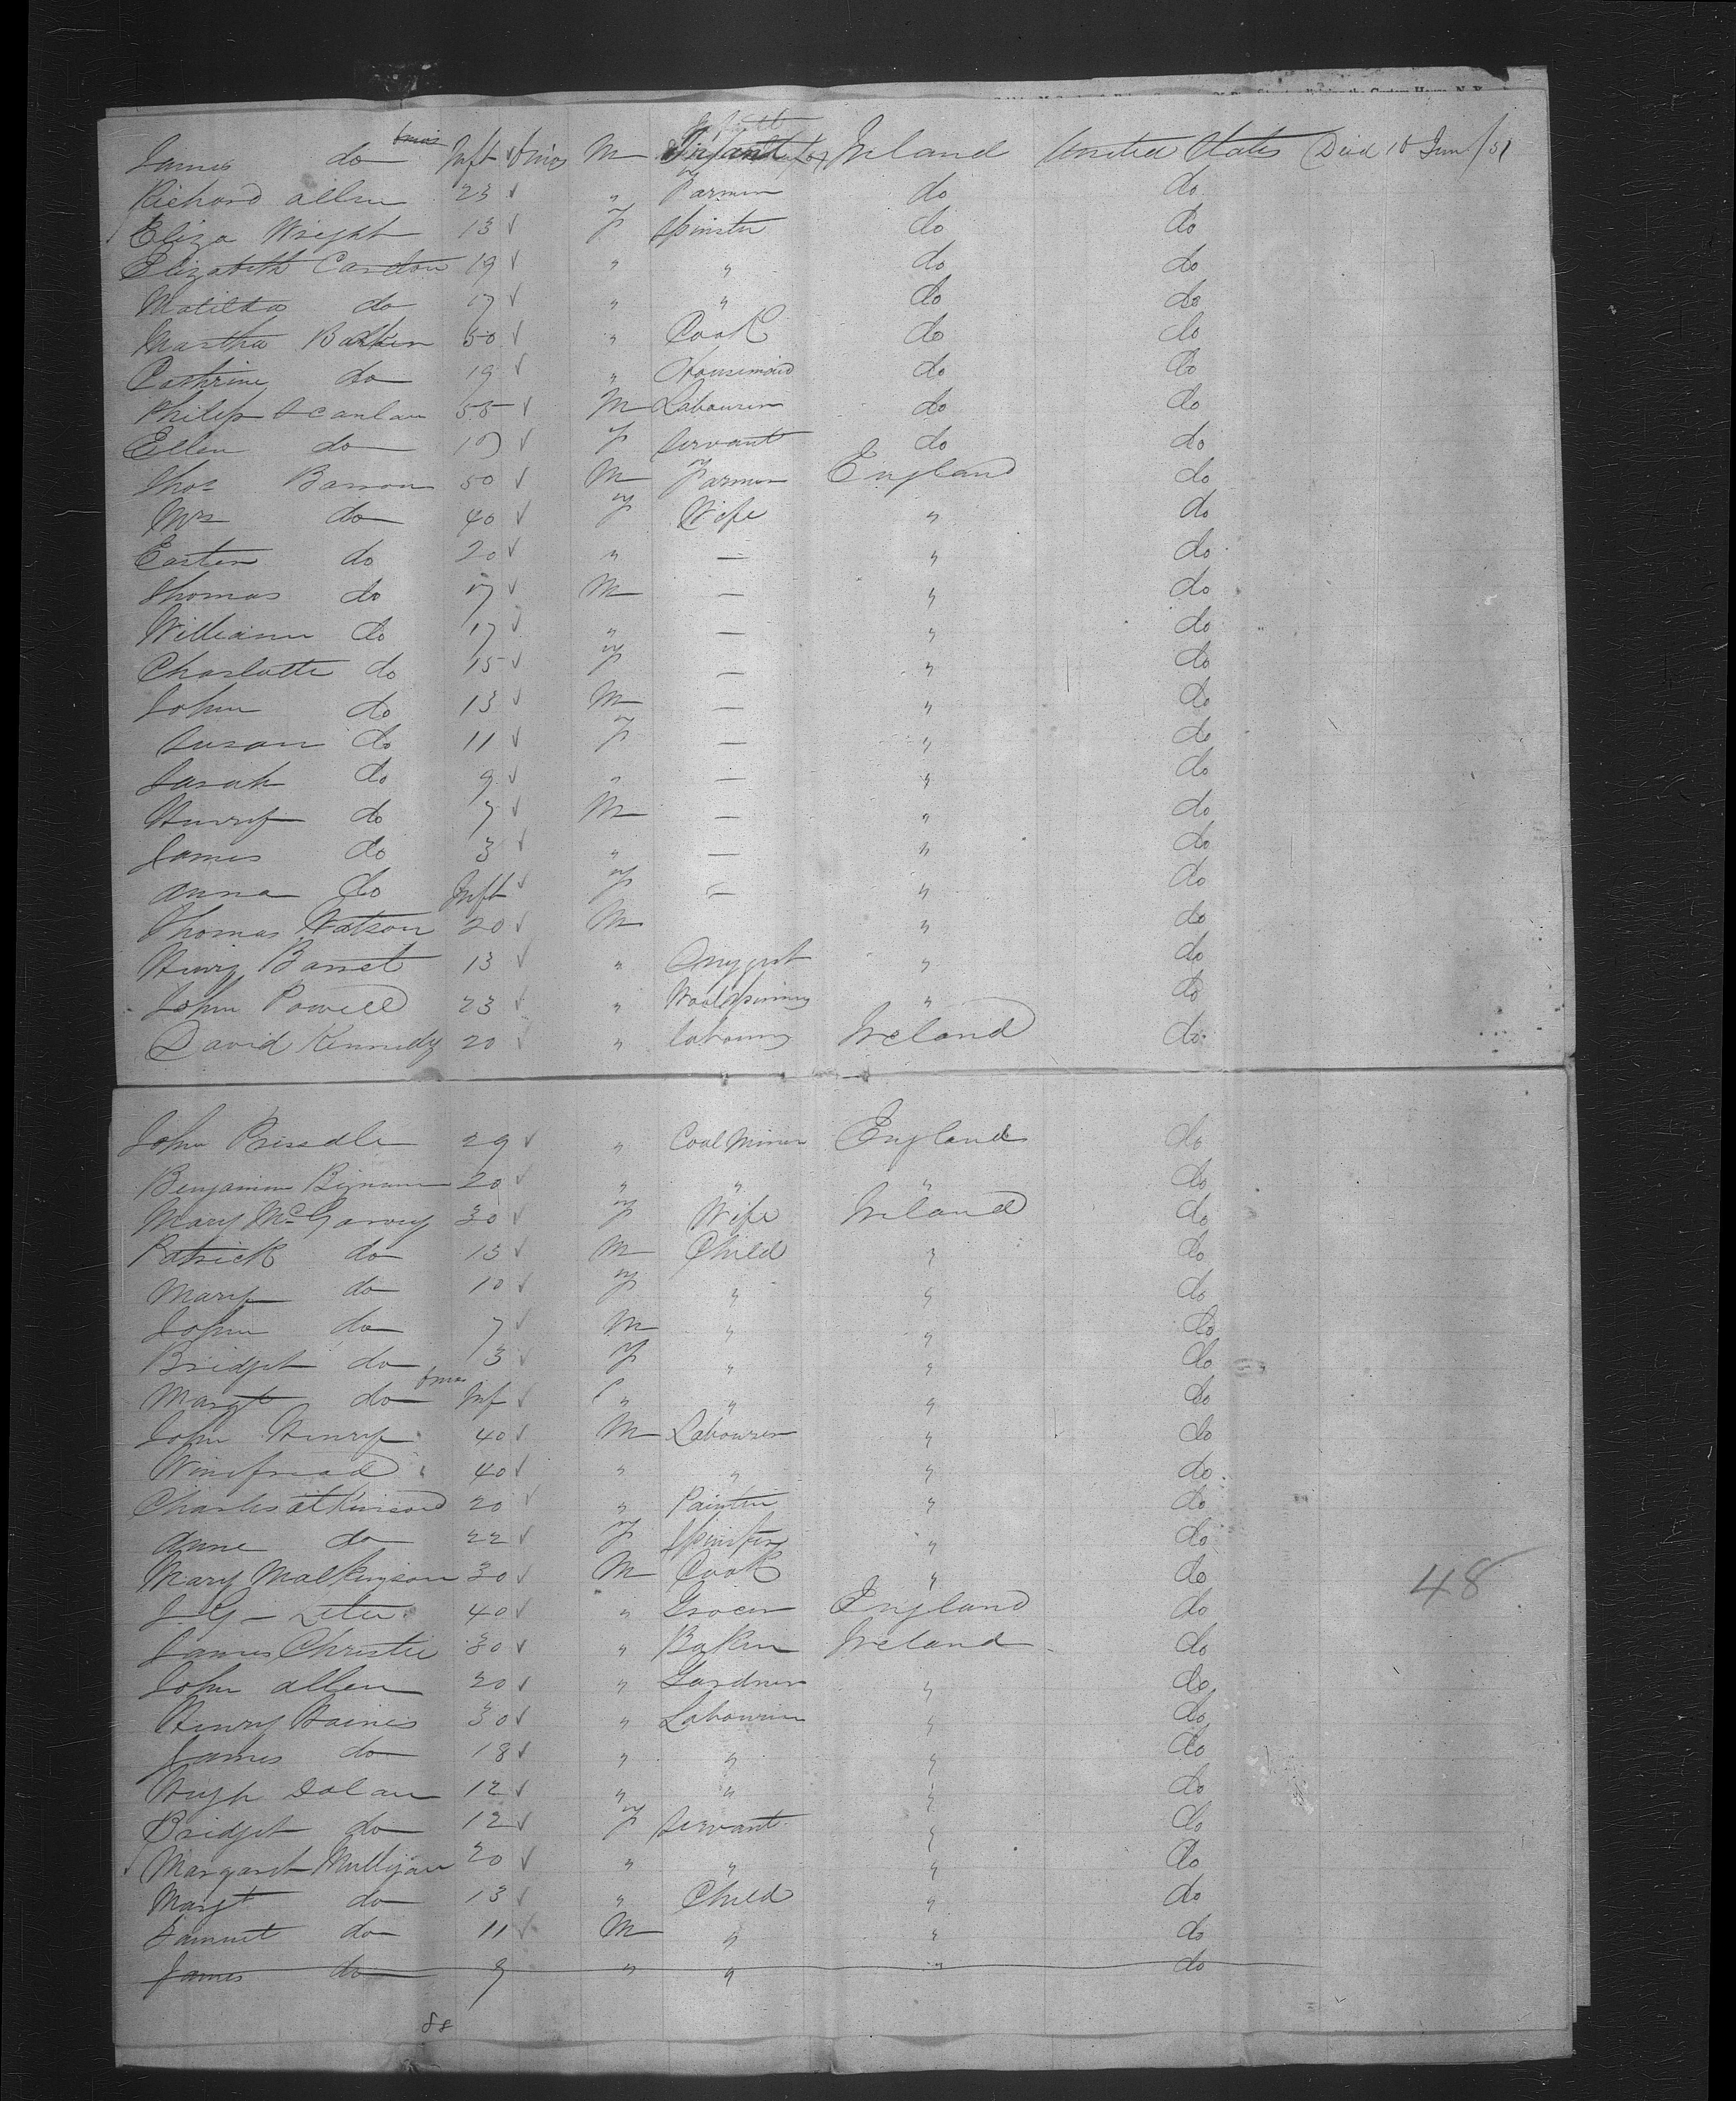 James do Inft 6 mos M Infant Ireland United States Died 15 June/51
Richard Allen 23 " Farmer do do
Eliza Wright 13 F Spinster do do
Elizabeth 19 " " do do
Matilda do 17 " " do do
Martha 50 " Cook do do
Cathrine do 19 " Housemaid do do
Philip Scanlan 55 M Labourer do do
Ellen do 17 F Servant do do
Thos Barron 50 M Farmer England do
Mrs do 40 F Wife " do
Easter do 20 " — " do
Thomas do 17 M — " do
William do 17 " — " do
Charlotte do 15 F — " do
John do 13 M — " do
Susan do 11 F — " do
Sarah do 9 " — " do
Henry do 7 M — " do
James do 3 " — " do
Anna do Inft F — " do
Thomas Watson 20 M " do
Henry 13 " " do
John Powell 23 " " do
David Kennedy 20 " labourer Ireland do
John 29 " Coal Miner England do
Benjamin 20 " " " do
Mary McGarvey 30 F Wife Ireland do
Patrick do 13 M Child " do
Mary do 10 F " " do
John do 7 M " " do
Bridget do 3 F " " do
Margt do 6 mos Inf " " " do
John Henry 40 M Labourer " do
Winefread " 40 " " " do
Charles Atkinson 20 " Painter " do
Anne do 22 F Spinster " do
Mary Malkinson 30 M Cook " do
40 " Grocer England do
James Christie 30 " Baker Ireland do
John Allen 20 " Gardner " do
Henry Haines 30 " Labourer " do
James do 18 " " " do
Hugh Dolan 12 " " " do
Bridget do 12 F Servant " do
Margaret Mulligan 20 " " " do
Margt do 13 " Child " do
do 11 M " " do
James do 9 " " " do
48
88